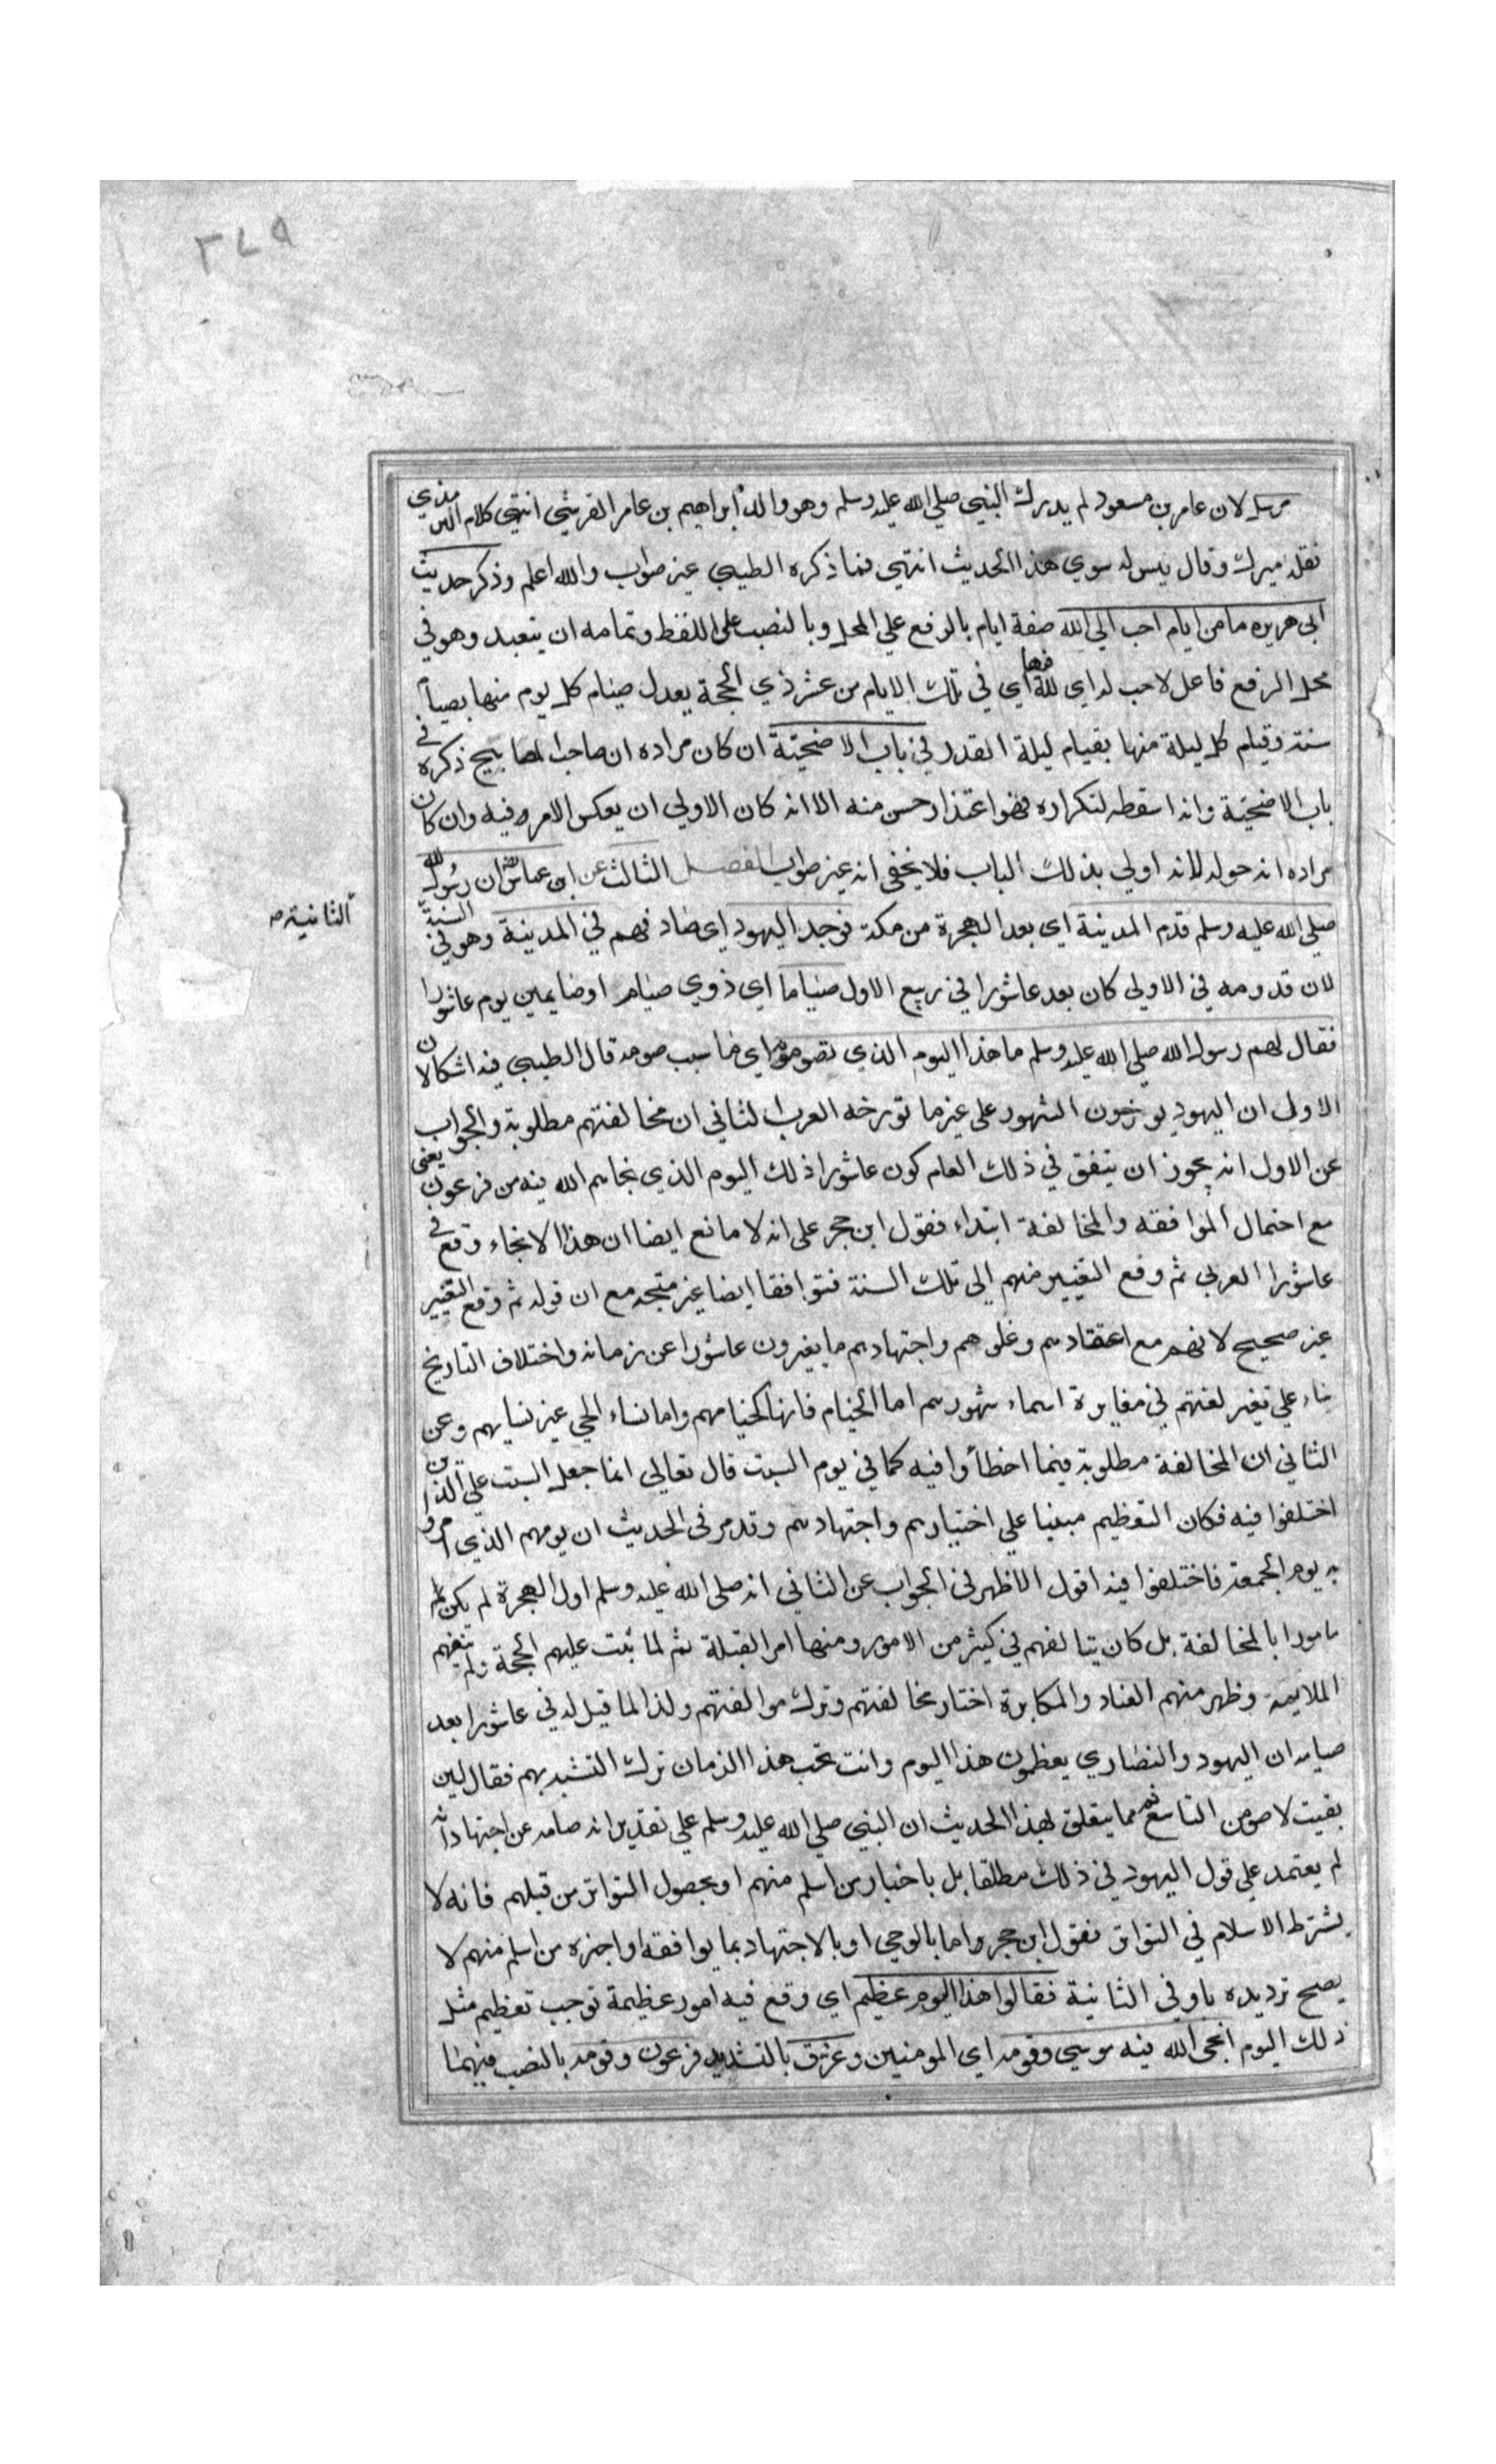 ٢٧٩
مرسل لان عامر بن مسعود لم يدرك النبي صلي الله عليه وسلم وهو والد ابراهيم بن عامر القرشي انتهي كلام الترمذي
نقله ميرك وقال ليس له سوي هذا الحديث انتهي فما ذكره الطيبي غير صواب والله اعلم وذكر حديث
ابي هريره ما من ايام احب الي الله صفة ايام بالرفع علي المحل وبالنصب علي اللفظ وتمامه ان يتعبد وهو في
محل الرفع فاعل لاحب له اي لله فيها اي في تلك الايام من عشر ذي الحجة يعدل صيام كل يوم منها بصيام
سنة وقيام كل ليلة منها بقيام ليلة القدر في باب الاضحية ان كان مراده ان صاحب المصابيح ذكره في
باب الاضحية وانه اسقطه لتكراره فهو اعتذار حسن منه الا انه كان الاولي ان يعكس الامر فيه وان كان
مراده انه حوله لانه اولي بذلك الباب فلا يخفي انه غير صواب الفصل الثالث عن ابن عباس ان رسول الله
صلي الله عليه وسلم قدم المدينة اي بعد الهجرة من مكة فوجد اليهود اي صادفهم في المدينة وهو في السنة
الثانية صح
لان قدومه في الاولي كان بعد عاشورا في ربيع الاول صياما اي ذوي صيام او صايمين يوم عاشورا
فقال لهم رسول الله صلي الله عليه وسلم ما هذا اليوم الذي تصومونه اي ما سبب صومه قال الطيبي فيه اشكالان
الاولي ان اليهود يورخون الشهور علي غير ما تورخه العرب الثاني ان مخالفتهم مطلوبة والجواب
عن الاول انه يجوز ان يتفق في ذلك العام كون عاشورا ذلك اليوم الذي نجاهم الله فيه من فرعون يعني
مع احتمال الموافقه والمخالفة ابتداء فقول ابن حجر علي انه لا مانع ايضا ان هذا الانجاء وقع في
عاشورا العربي ثم وقع التغيير منهم الي تلك السنة فتوافقا ايضا غير متجه مع ان قوله ثم وقع التغيير
غير صحيح لانهم مع اعتقادهم وغلوهم واجتهادهم ما يغيرون عاشورا عن زمانه واختلاف التاريخ
بناء علي تغير لغتهم في مغايرة اسماء شهورهم اما الخيام فانها كخيامهم واما نساء الحي غير نسايهم وعن
الثاني ان المخالفة مطلوبة فيما اخطأوا فيه كما في يوم السبت قال تعالي انما جعل السبت علي الذين
اختلفوا فيه فكان التعظيم مبنيا علي اختيارهم واجتهادهم وقد مر في الحديث ان يومهم الذي امروا
به يوم الجمعة فاختلفوا فيه اقول الاظهر في الجواب عن الثاني انه صلي الله عليه وسلم اول الهجرة لم يكن
مامورا بالمخالفة بل كان يتالفهم في كثير من الامور ومنها امر القبلة ثم لما ثبت عليهم الحجة ولم تنفعهم
الملايمة وظهر منهم العناد والمكابرة اختار مخالفتهم وترك موالفتهم ولذا لما قيل له في عاشورا بعد
صيامه ان اليهود والنصاري يعظمون هذا اليوم وانت تحب هذا الزمان ترك التشبه بهم فقال لين
بقيت لاصومن التاسع ثم مما يتعلق بهذا الحديث ان النبي صلي الله عليه وسلم علي تقدير انه صامه عن اجتهاد انه
لم يعتمد علي قول اليهود في ذلك مطلقا بل باخبار من اسلم منهم او بحصول التواتر من قبلهم فانه لا
يشترط الاسلام في التواتر فقول ابن حجر واما بالوحي او بالاجتهاد بما يوافقه او اخبره من اسلم منهم لا
يصح ترديده باو في الثانية فقالوا هذا اليوم عظيم اي وقع فيه امور عظيمة توجب تعظيم مثل
ذلك اليوم انجي الله فيه موسي وقومه اي المومنين وغرق بالتشديد فرعون وقومه بالنصب فيهما